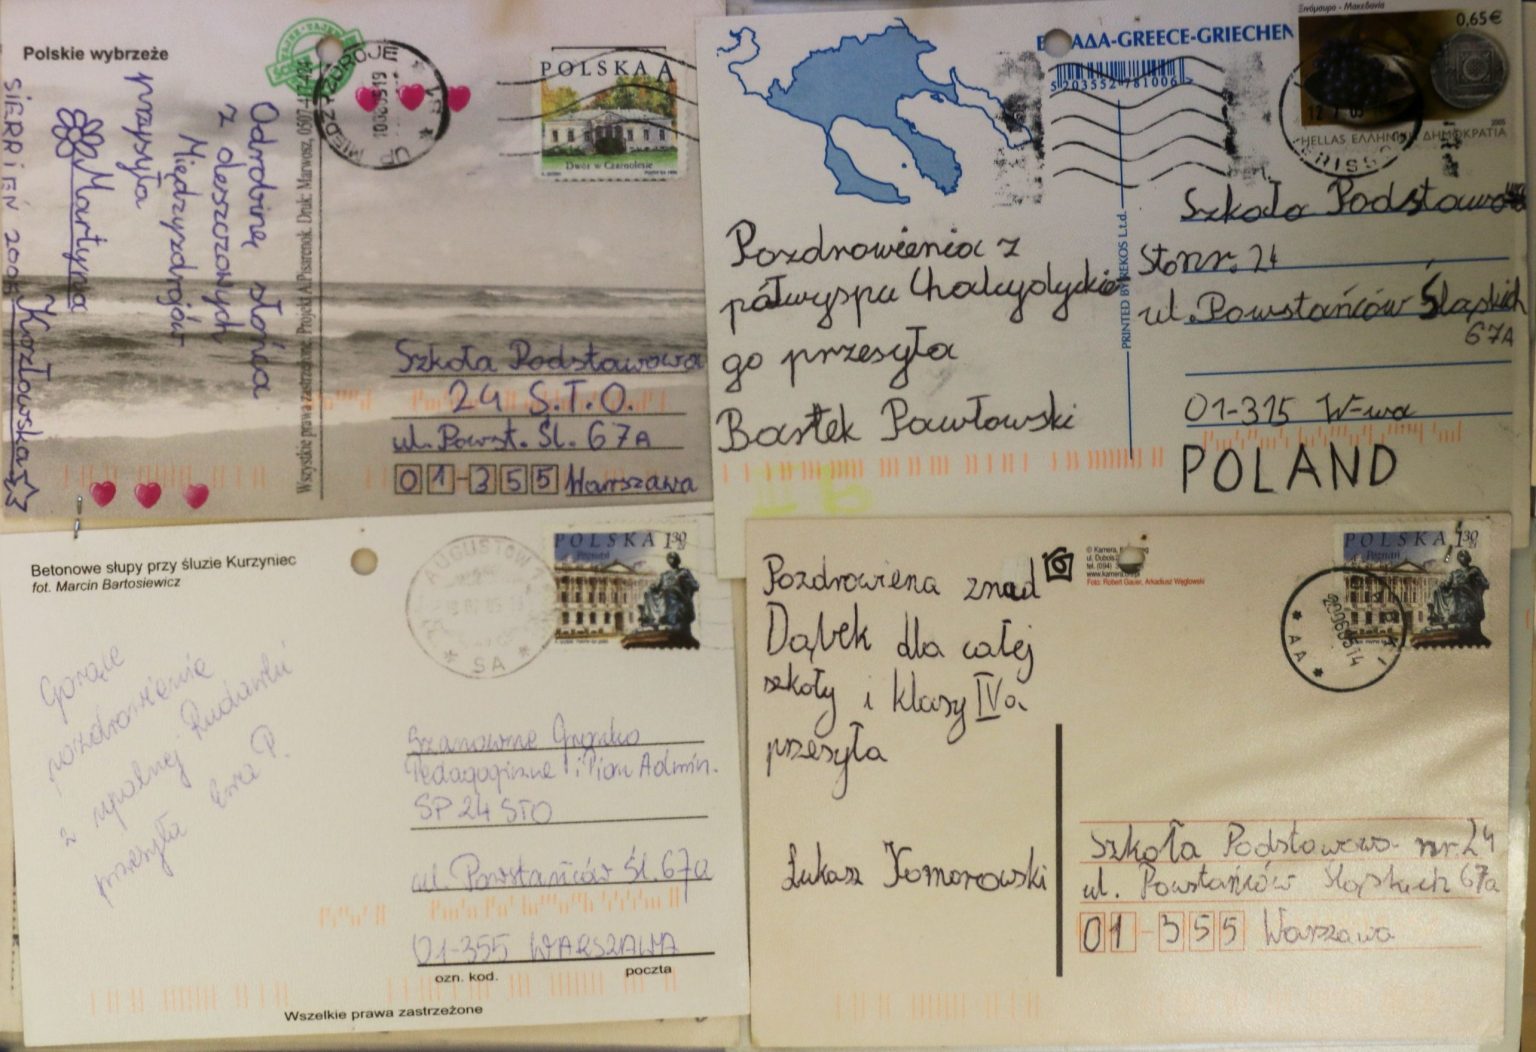 Polskie wybrzeże
POLSKA A
Dwór w Czarnolesie
UP MIĘDZYZDROJE
Odrobinę słońca
z deszczowych
Międzyzdrojów
przesyła
Martyna
Kozłowska
SIERPIEŃ 2005
Wszystkie prawa zastrzeżone. Projekt A. Pisarenok. Druk: Marwosz, 0507-417424
Szkoła Podstawowa
24 S.T.O.
ul. Powst. Śl. 67A
01-355 Warszawa
ΕΛΛΑΔΑ-GREECE-GRIECHEN
5 203552 781006
Ξινόμαυρο - Μακεδονία
0,65€
2005
HELLAS ΕΛΛΗΝΙΚΗ ΔΗΜΟΚΡΑΤΙΑ
Pozdrowienia z
półwyspu Chalcydyckie
go przesyła
Bartek Pawłowski
PRINTED BY REKOS L.t.d.
Szkoło Podstawowa
Sto nr. 24
ul. Powstańców Śląskich
67A
01-315 W-wa
POLAND
Betonowe słupy przy śluzie Kurzyniec
fot. Marcin Bartosiewicz
AUGUSTÓW 1
SA
POLSKA 1,30 zł
Poznań
Gorące
pozdrowienia
z upalnej Rudawki
przesyła Ewa P.
Szanowne Grono
Pedagogiczne i Pion Admin.
SP 24 STO
ul. Powstańców Śl. 67a
01-355 WARSZAWA
ozn. kod. poczta
Wszelkie prawa zastrzeżone
Pozdrowiena znad
Dąbek dla całej
szkoły i klasy IVa
przesyła
Łukasz Komorowski
www.kamera.org.pl
Foto: Robert Gauer, Arkadiusz Węglowski
POLSKA 1,30 zł
Poznań
AA
290605 14
Szkoła Podstawowa nr. 24
ul. Powstańców Śląskich 67a
01-355 Warszawa